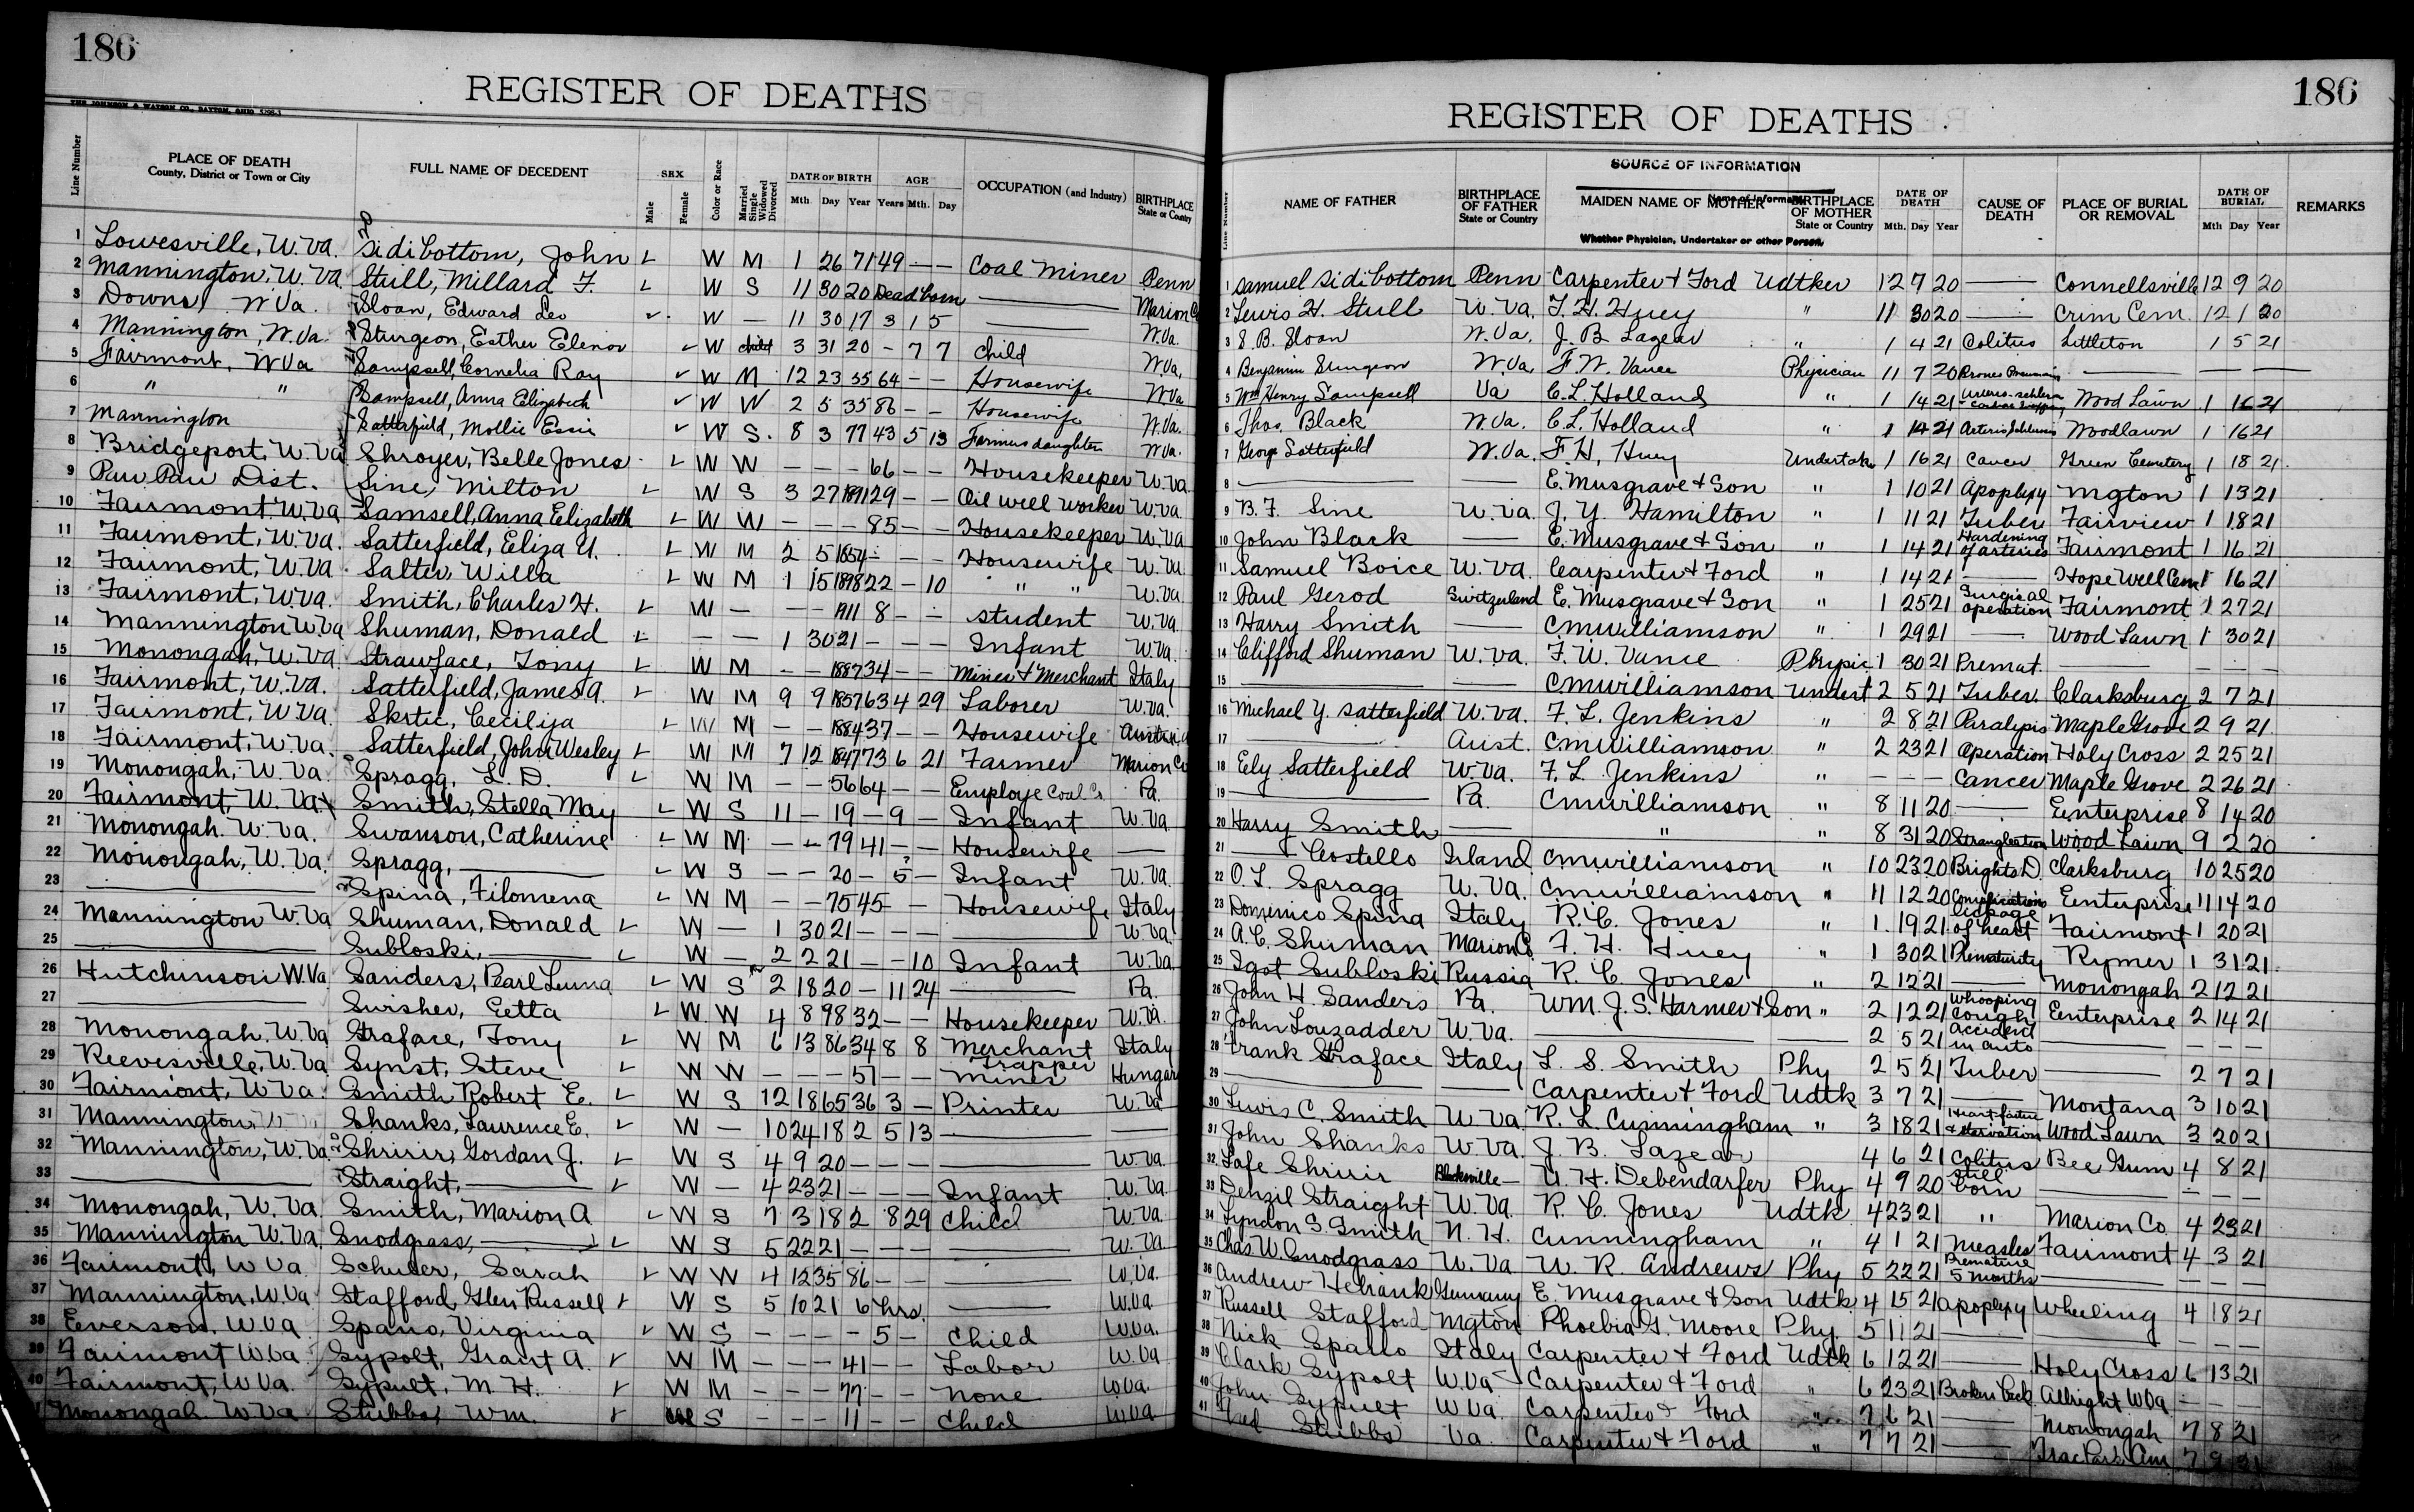 186
REGISTER OF DEATHS
THE JOHNSON & WATSON CO., DAYTON, OHIO
Line Number PLACE OF DEATH County, District or Town or City FULL NAME OF DECEDENT SEX Male Female Color or Race Married Single Widowed Divorced DATE OF BIRTH Mth. Day Year AGE Years Mth. Day OCCUPATION (and Industry) BIRTHPLACE State or County
1 Lowesville, W.Va. Sidibottom, John W M 1 26 71 49 — — Coal Miner Penn
2 Mannington, W.Va. Stull, Millard F. W S 11 30 20 Dead born — Marion Co
3 Downs, W Va. Sloan, Edward Leo W — 11 30 17 3 1 5 — W.Va.
4 Mannington, W.Va. Sturgeon, Esther Elenor W child 3 31 20 – 7 7 child W.Va.
5 Fairmont, W Va Sampsell, Cornelia Ray W M 12 23 55 64 – – Housewife W.Va
6 " " Sampsell, Anna Elizabeth W W 2 5 35 86 – – Housewife W.Va.
7 Mannington Satterfield, Mollie Essie W S. 8 3 77 43 5 13 Farmers daughter W.Va.
8 Bridgeport, W.Va Shroyer, Belle Jones W W — — — 66 — — Housekeeper W.Va.
9 Paw Paw Dist. Sine, Milton W S 3 27 1891 29 – – Oil Well Worker W.Va
10 Fairmont, W.Va Samsell, Anna Elizabeth W W — — — 85 — — Housekeeper W.Va
11 Fairmont, W.Va. Satterfield, Eliza U. W M 2 5 1854 — — — Housewife W.Va.
12 Fairmont, W.Va. Salter, Willa W M 1 15 1898 22 – 10 " " W.Va
13 Fairmont, W.Va. Smith, Charles H. W — — — 1911 8 – – student W.Va.
14 Mannington W.Va Shuman, Donald — — 1 30 21 — — — Infant W.Va.
15 Monongah, W.Va Strawface, Tony W M — — 1887 34 — — Miner & Merchant Italy
16 Fairmont, W.Va. Satterfield, James A. W M 9 9 1857 63 4 29 Laborer W.Va.
17 Fairmont, W.Va. Skrtic, Cecilija W M — — 1884 37 — — Housewife Austria
18 Fairmont, W.Va. Satterfield, John Wesley W M 7 12 1847 73 6 21 Farmer Marion Co
19 Monongah, W.Va. Spragg, L. D. W M — — 56 64 — — Employe Coal Co Pa.
20 Fairmont, W.Va. Smith, Stella May W S 11 — 19 — 9 — Infant W.Va
21 Monongah. W.Va. Swanson, Catherine W M — — 79 41 — — Housewife —
22 Monongah, W.Va. Spragg, — W S — — 20 — 5 ? — Infant W.Va.
23 — Spina, Filomena W M — — 75 45 — — Housewife Italy
24 Mannington W.Va Shuman, Donald W — 1 30 21 — — — — W.Va.
25 — Subloski, — W — 2 2 21 — — 10 Infant W.Va.
26 Hutchinson W.Va Sanders, Pearl Leuna W S 2 18 20 — 11 24 — Pa.
27 — Swisher, Eetta W. W 4 8 98 32 — — Housekeeper W.Va.
28 Monongah. W.Va Straface, Tony W M 6 13 86 34 8 8 Merchant Italy
29 Reevesville, W.Va. Synst, Steve W W — — — 57 — — Trapper Miner Hungar
30 Fairmont, W.Va. Smith Robert E. W S 12 18 65 36 3 — Printer W.Va
31 Mannington, Shanks, Laurence E. W — 10 24 18 2 5 13 — —
32 Mannington, W.Va. Shririr, Gordan J. W S 4 9 20 — — — — W.Va.
33 — Straight, — W — 4 23 21 — — — Infant W.Va.
34 Monongah, W.Va. Smith, Marion A W S 7 3 18 2 8 29 Child W.Va.
35 Mannington W.Va. Snodgrass, — W S 5 22 21 — — — — W.Va
36 Fairmont, W Va. Schuler, Sarah W W 4 12 35 86 — — — W.Va.
37 Mannington, W.Va Stafford, Glen Russell W S 5 10 21 6 hrs. — W.Va
38 Everson, W.Va Spano, Virginia W S — — — — 5 — Child W.Va.
39 Fairmont W.Va Sypolt, Grant A. W M — — — 41 — — Labor W.Va
40 Fairmont, W.Va. Sypult, M. H. W M — — — 77 — — None W.Va.
Monongah. W.Va Stubbs, Wm. Col S — — — 11 — — Child W.Va
186
REGISTER OF DEATHS
Line Number NAME OF FATHER BIRTHPLACE OF FATHER State or Country SOURCE OF INFORMATION Name of Informant MAIDEN NAME OF MOTHER Whether Physician, Undertaker or other Person. BIRTHPLACE OF MOTHER State or Country DATE OF DEATH Mth. Day Year CAUSE OF DEATH PLACE OF BURIAL OR REMOVAL DATE OF BURIAL Mth Day Year REMARKS
1 Samuel Sidibottom Penn Carpenter & Ford Udtker 12 7 20 — Connellsville 12 9 20
2 Lewis H. Stull W.Va. F. H. Huey " 11 30 20 — Crim Cem. 12 1 20
3 S. B. Sloan W.Va. J. B. Lazear " 1 4 21 Colitis Littleton 1 5 21
4 Benjamin Sturgeon W.Va. F. W. Vance Physician 11 7 20 — — — —
5 Wm Henry Sampsell Va C. L. Holland " 1 14 21 Wood Lawn 1 16 21
6 Thos. Black W.Va. C. L. Holland " 1 14 21 Woodlawn 1 16 21
7 George Satterfield W.Va. F. H. Huey Undertaker 1 16 21 Cancer Green Cemetery 1 18 21
8 — — E. Musgrave & Son " 1 10 21 Apoplexy Mgton 1 13 21
9 B. F. Sine W.Va. J. Y. Hamilton " 1 11 21 Tuber Fairview 1 18 21
10 John Black — E. Musgrave & Son " 1 14 21 Hardening of arteries Fairmont 1 16 21
11 Samuel Boice W.Va. Carpenter & Ford " 1 14 21 — Hope Well Cem 1 16 21
12 Paul Gerod Switzerland E. Musgrave & Son " 1 25 21 Surgical operation Fairmont 1 27 21
13 Harry Smith — C M Williamson " 1 29 21 — Wood Lawn 1 30 21
14 Clifford Shuman W.Va. F. W. Vance Physic 1 30 21 Premat. — — — —
15 — — C M Williamson Undert 2 5 21 Tuber. Clarksburg 2 7 21
16 Michael Y. Satterfield W.Va. F. L. Jenkins " 2 8 21 Paralysis Maple Grove 2 9 21
17 — Aust. C M Williamson " 2 23 21 Operation Holy Cross 2 25 21
18 Ely Satterfield W.Va. F. L. Jenkins " — — — Cancer Maple Grove 2 26 21
19 — Pa. C M Williamson " 8 11 20 — Eenterprise 8 14 20
20 Harry Smith — " " 8 31 20 Strangleation Wood Lawn 9 2 20
21 — Costello Irland C M Williamson " 10 23 20 Brights D. Clarksburg 10 25 20
22 O. L. Spragg W.Va. C M Williamson " 11 12 20 Complications Eenterprise 11 14 20
23 Domenico Spina Italy R. C. Jones " 1 19 21 lickage of heart Fairmont 1 20 21
24 A. C. Shuman Marion Co. F. H. Huey " 1 30 21 Prematurity Rymer 1 31 21
25 Igot Subloski Russia R. C. Jones " 2 12 21 — Monongah 2 12 21
26 John H. Sanders Pa. WM. J. S. Harmer & Son " 2 12 21 Whooping Cough Eenterprise 2 14 21
27 John Louzadder W.Va. — — 2 5 21 Accident in auto — — — —
28 Frank Straface Italy L. S. Smith Phy 2 5 21 Tuber — 2 7 21
29 — — Carpenter & Ford Udtk 3 7 21 — Montana 3 10 21
30 Lewis C. Smith W Va. R. L. Cunningham " 3 18 21 Heart failure & starvation Wood Lawn 3 20 21
31 John Shanks W.Va. J. B. Lazear 4 6 21 Colitus Bee Gum 4 8 21
32 Lafe Shririr Blacksville U. H. Debendarfer Phy 4 9 20 Still born — — — —
33 Denzil Straight W.Va. R. C. Jones Udtk 4 23 21 " Marion Co 4 23 21
34 Lyndon S. Smith N. H. Cunningham " 4 1 21 Measles Fairmont 4 3 21
35 Chas. W. Snodgrass W.Va W. R. Andrews Phy 5 22 21 Premature 5 months — — — —
36 Andrew Hchrank Germany E. Musgrave & Son Udtk. 4 15 21 Apoplexy Wheeling 4 18 21
37 Russell Stafford Mgton Phoebia G. Moore Phy. 5 11 21 — — — — —
38 Nick Spano Italy Carpenter & Ford Udtk 6 12 21 — Holy Cross 6 13 21
39 Clark Sypolt W.Va Carpenter & Ford " 6 23 21 Broken Back Albright W.Va — — —
40 John Sypult W Va. Carpenter & Ford " 7 6 21 — Monongah 7 8 21
41 Fred Stubbs Va. Carpenter & Ford " 7 7 21 — 7 9 21